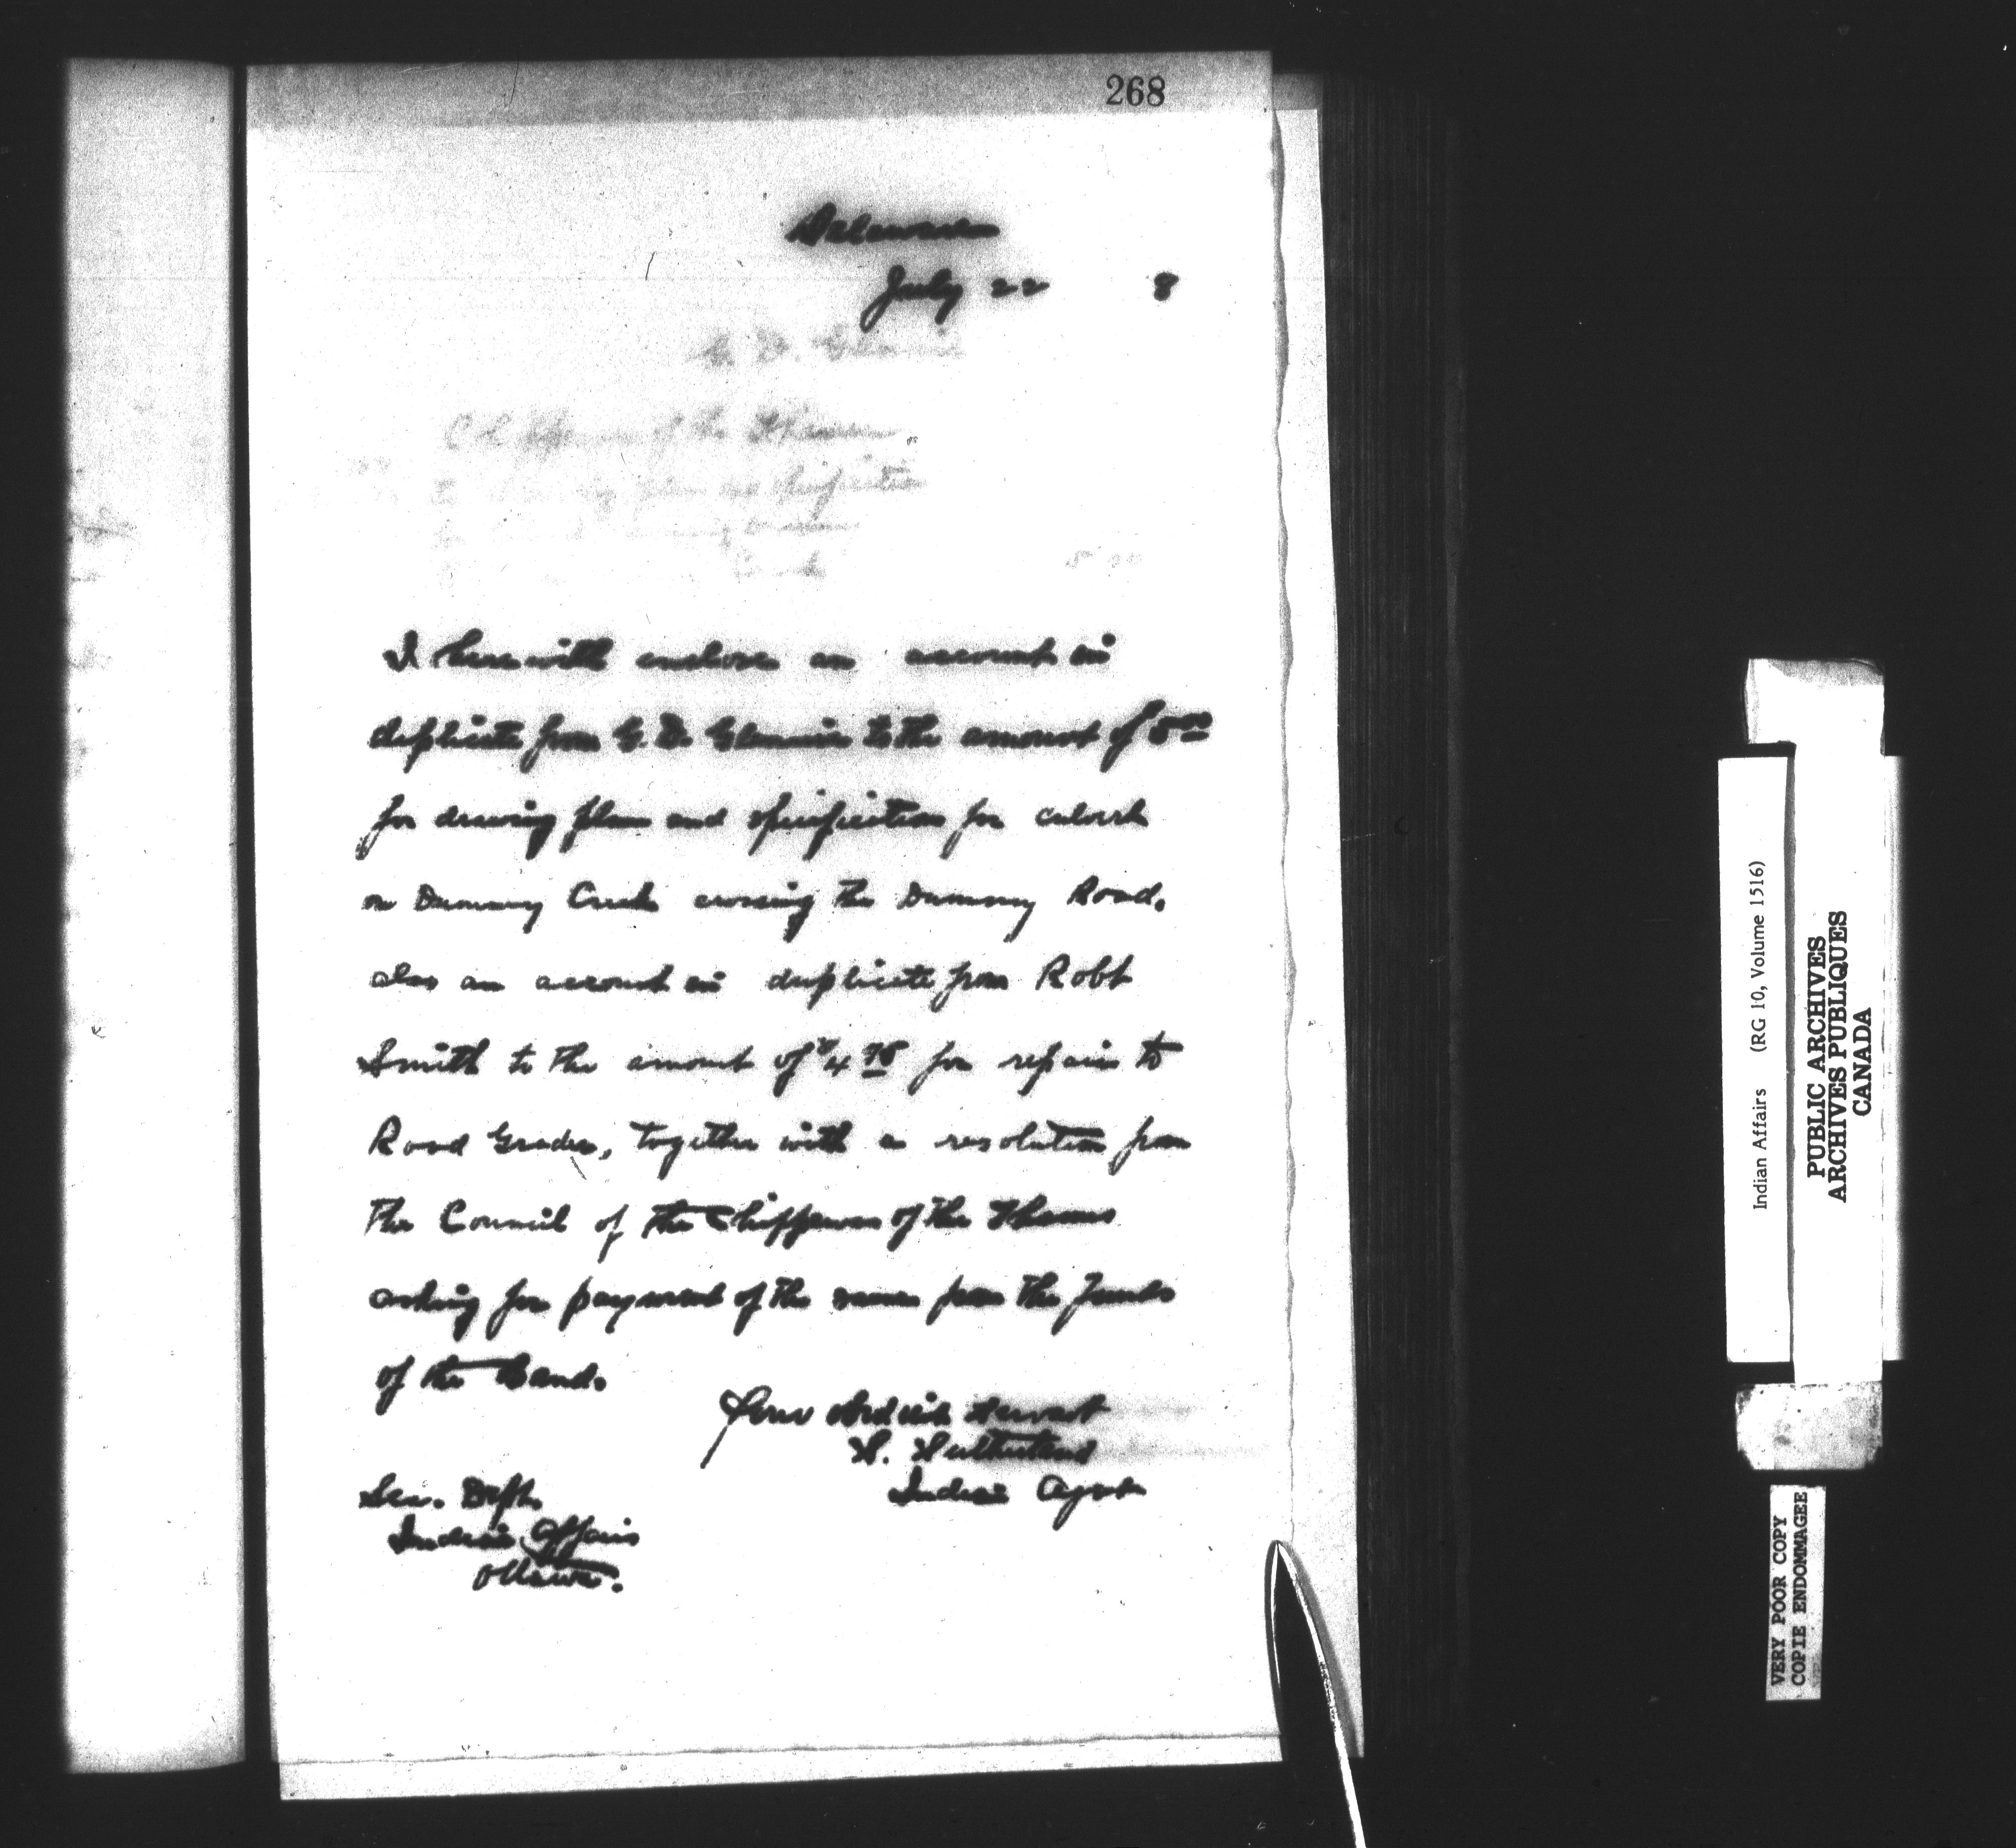 268
Delaware
July 22 8
G. D. 
Chippewas of the Thames
plan and specification
5 00
I herewith enclose an account in
duplicate from G. D. Glennie to the amount of 5 00
for drawing plan and specification for culvert
on Dummy Creek crossing the Dummy Road.
also an account in duplicate from Robt
Smith to the amount of $4 75 for repairs to
Road Grader, together with a resolution from
the Council of the Chippewas of the Thames
asking for payment of the same from the Funds
of the Band.
Your obedient Servant
S. Sutherland
Indian Agent
Sec. Dept.
Indian Affairs
Ottawa.
Indian Affairs (RG 10, Volume 1516)
PUBLIC ARCHIVES
ARCHIVES PUBLIQUES
CANADA
VERY POOR COPY
COPIE ENDOMMAGEE